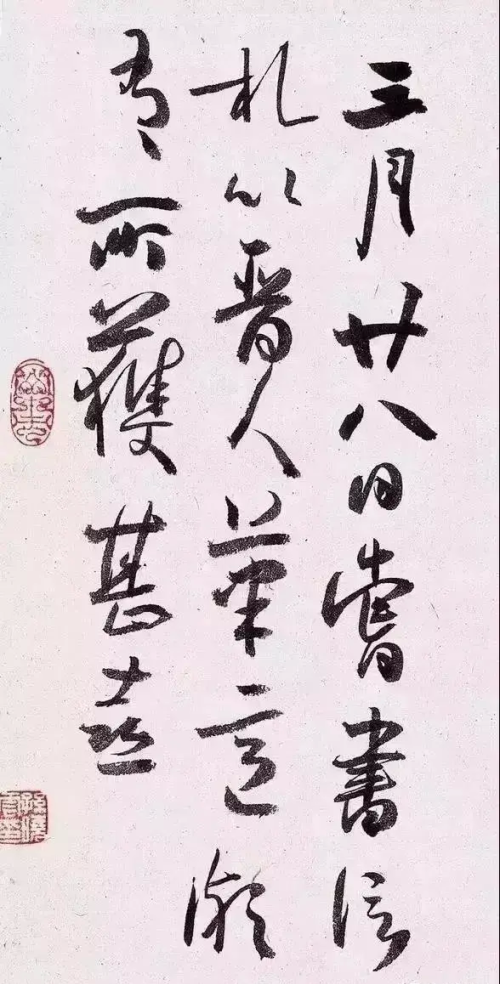 三月廿八日嘗書信
札以晉人筆意頗
有所獲甚喜